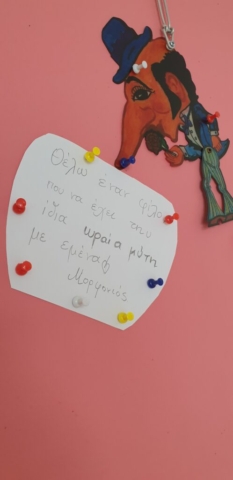 Θέλω έναν φίλο
που να έχει την
ίδια ωραία μύτη
με εμένα
Μορφονιός